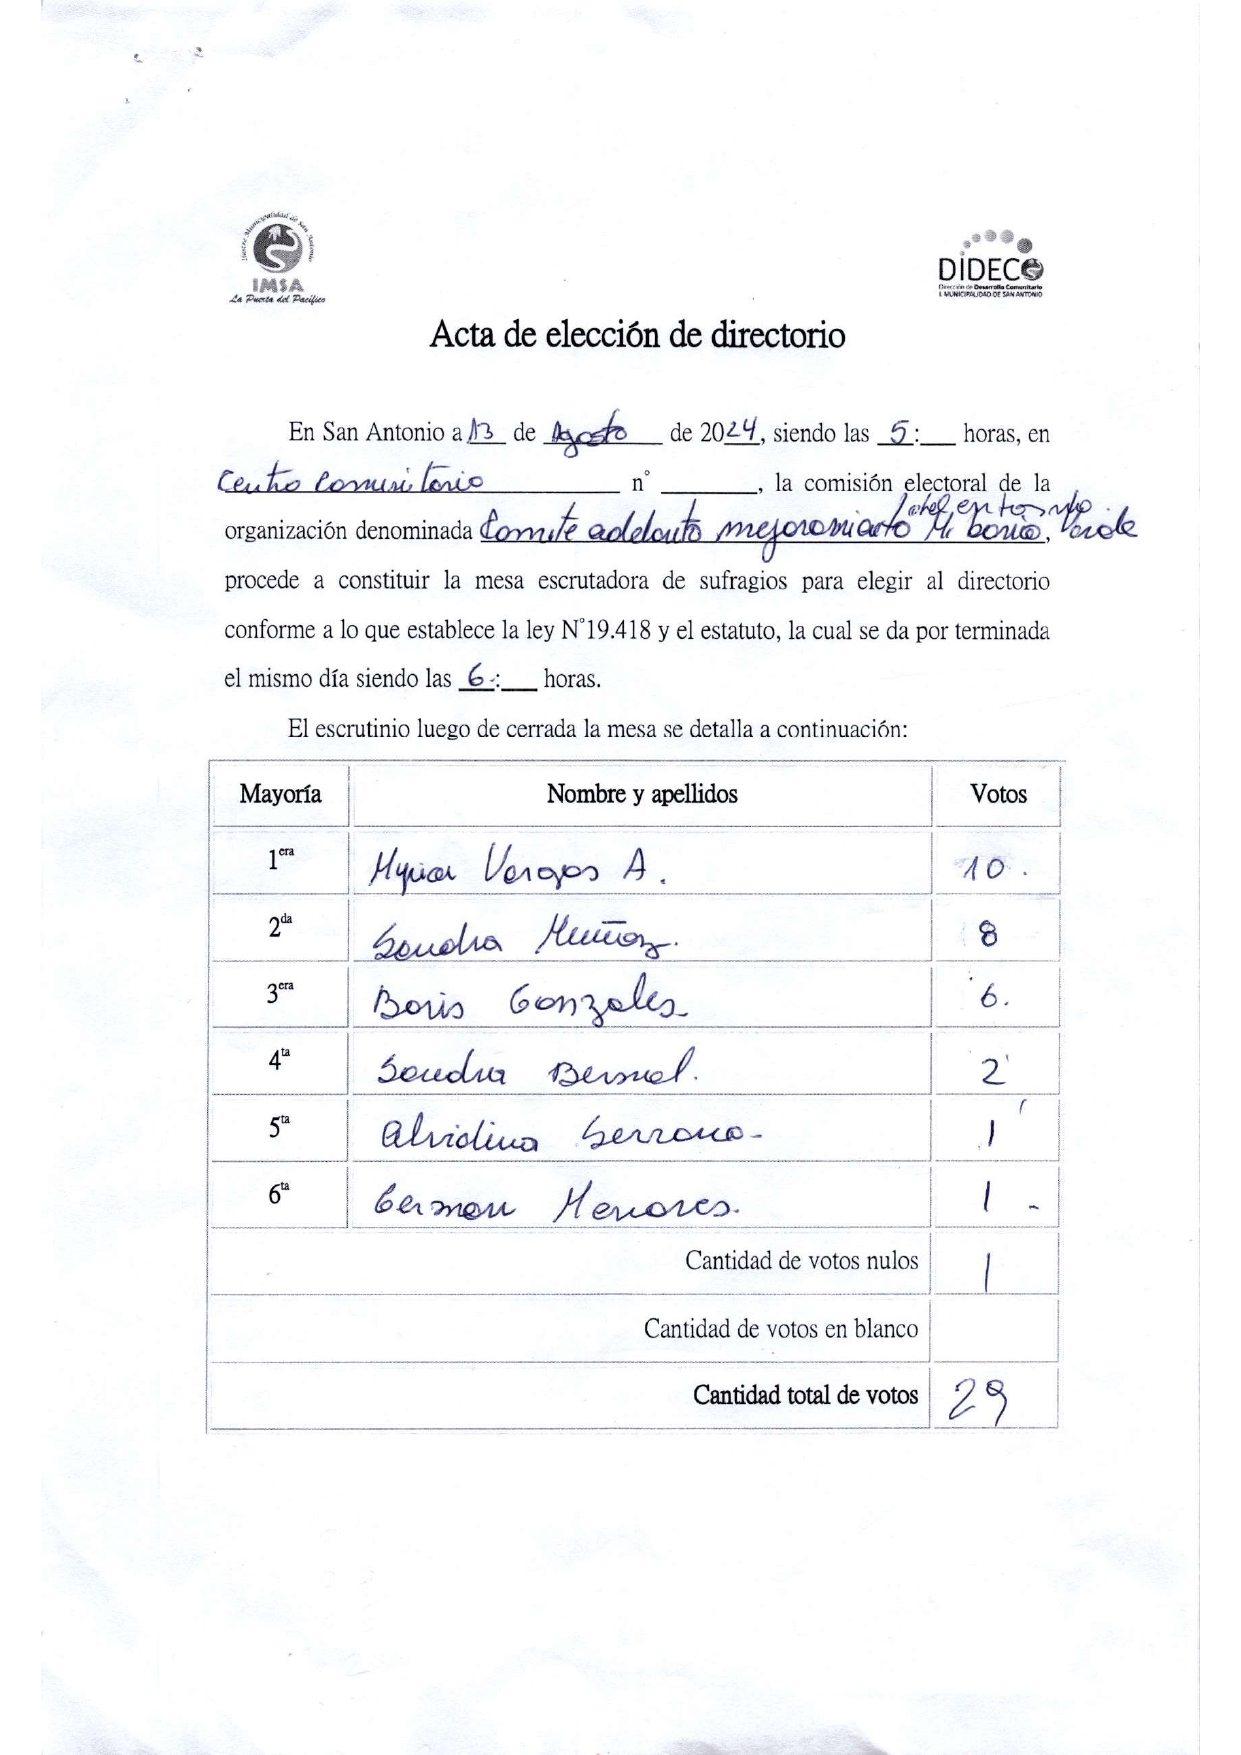 Ilustre Municipalidad de San Antonio
IMSA
La Puerta del Pacífico
DIDECO
Dirección de Desarrollo Comunitario
I. MUNICIPALIDAD DE SAN ANTONIO
Acta de elección de directorio
En San Antonio a 13 de Agosto de 2024, siendo las 5:___ horas, en
Centro Comunitario n° _______, la comisión electoral de la
organización denominada Comité adelanto mejoramiento Mi barrio, Verde
procede a constituir la mesa escrutadora de sufragios para elegir al directorio
conforme a lo que establece la ley N°19.418 y el estatuto, la cual se da por terminada
el mismo día siendo las 6:___ horas.
El escrutinio luego de cerrada la mesa se detalla a continuación:
Mayoría Nombre y apellidos Votos
1era Vargas A. 10.
2da Sandra Muñoz. 8
3era Boris Gonzales. 6.
4ta Sandra Bernal. 2
5ta Alvidina Serrano- 1
6ta German Henares. 1 -
Cantidad de votos nulos 1
Cantidad de votos en blanco
Cantidad total de votos 29